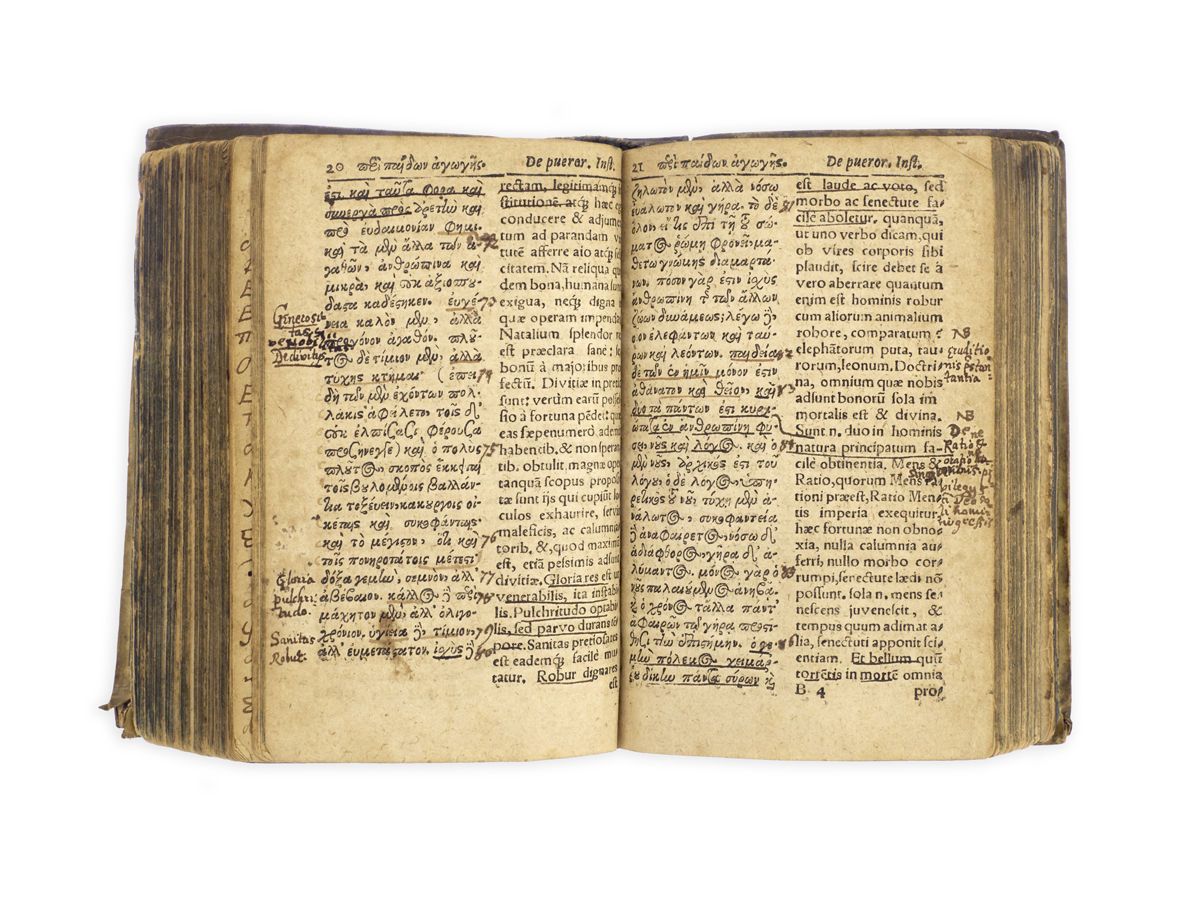 20 περὶ παίδων ἀγωγῆς.
De pueror. Inst.
ἔτι καὶ ταῦτα φορὰ καὶ
συνεργὰ πρὸς ἀρετὴν καὶ
πρὸς εὐδαιμονίαν φημι.
καὶ τὰ μὲν ἄλλα τῶν ἀ-
γαθῶν, ἀνθρώπινα καὶ
μικρὰ καὶ οὐκ ἀξιοσπού-
δαστα καθέστηκεν. εὐγέ-
νεια καλὸν μὲν, ἀλλὰ
προγόνων ἀγαθόν. πλοῦ-
τος δὲ τίμιον μὲν, ἀλλὰ
τύχης κτῆμα· (ἐπει
δὴ τῶν μὲν ἐχόντων πολ-
λάκις ἀφείλετο, τοῖς δ'
οὐκ ἐλπίσασι φέρουσα
προσήνεγκε) καὶ ὁ πολὺς
πλοῦτος, σκοπὸς ἔκκειται
τοῖς βουλομένοις βαλλάν-
τια τοξεύειν, κακούργοις οἰ-
κέταις καὶ συκοφάνταις.
καὶ τὸ μέγιστον, ὅτι καὶ
τοῖς πονηροτάτοις μέτεστι
δόξα γε μὴν, σεμνὸν, ἀλλ'
ἀβέβαιον. κάλλος δὲ περι-
μάχητον μὲν, ἀλλ' ὀλιγο-
χρόνιον. ὑγίεια δὲ τίμιον,
ἀλλ' εὐμετάστατον. ἰσχὺς δὲ
Generosi
tas
De divitiis
Gloria
pulchri
tudo.
Sanitas
Robur.
73
74
75
76
77
79
rectam, legitimamq;
stitutionē. atq; hæc
conducere & adjumē
tum ad parandam vi
tutē afferre aio atq;
citatem. Nā reliqua
dem bona, humana sunt
exigua, necq; digna
quæ operam impendas
Natalium splendor
est præclara sanè: sed
bonū à majoribus pro
fectū. Divitiæ in pretio
sunt: verùm earū posses
sio à fortuna pēdet:
eas sæpenumerò, ademit
habentib. & non speran
tib. obtulit, magnæ
tanquā scopus proposi
tæ sunt ijs qui cupiūt
culos exhaurire, servis
maleficis, ac calumnia
torib. &, quod maximū
est, etiā pessimis adsunt
divitiæ. Gloria res est
venerabilis, ita instabi
lis. Pulchritudo optabi
lis, sed parvo durans
pore. Sanitas pretiosa
est eademq; facilè mu
tatur. Robur dignares
est
21 περὶ παίδων ἀγωγῆς.
De pueror. Inst.
ζηλωτὸν μὲν, ἀλλὰ νόσῳ
εὐάλωτον καὶ γήρᾳ. τὸ δὲ
ὅλον, εἴ τις ἐπὶ τῇ τοῦ σώ-
ματος ῥώμῃ φρονεῖ, μα-
θέτω γνώμης διαμαρτά-
νων. πόσον γάρ ἐστιν ἰσχὺς
ἀνθρωπίνη τῆς τῶν ἄλλων
ζώων δυνάμεως; λέγω δὲ
οἷον ἐλεφάντων καὶ ταύ-
ρων καὶ λεόντων. παιδεία
δὲ τῶν ἐν ἡμῖν μόνον ἐστὶν
ἀθάνατον καὶ θεῖον, καὶ
δύο τὰ πάντων ἐστὶ κυρι-
ώτατα ἐν ἀνθρωπίνῃ φύ-
σει, νοῦς καὶ λόγος. καὶ ὁ
μὲν νοῦς, ἀρχικός ἐστι τοῦ
λόγου, ὁ δὲ λόγος, ὑπη-
ρετικὸς τοῦ νοῦ, τύχῃ μὲν ἀ-
νάλωτος, συκοφαντείᾳ
δὲ ἀναφαίρετος, νόσῳ δ'
ἀδιάφθορος, γήρᾳ δ' ἀ-
λύμαντος. μόνος γὰρ ὁ
νοῦς παλαιούμενος ἀνηβᾷ.
καὶ ὁ χρόνος τἄλλα πάντ'
ἀφαιρῶν τῷ γήρᾳ προστί-
θησι τὴν ἐπιστήμην. ὅ γε
μὴν πόλεμος χειμάρ-
ρου δίκην πάντα σύρων καὶ
81
82
83
est laude ac voto, sed
morbo ac senectute fa-
cilè aboletur. quanquā,
ut uno verbo dicam, qui
ob vires corporis sibi
plaudit, scire debet se à
vero aberrare quantum
enim est hominis robur
cum aliorum animalium
robore, comparatum?
elephātorum puta, tau-
rorum, leonum. Doctri-
na, omnium quæ nobis
adsunt bonorū sola im
mortalis est & divina.
Sunt n. duo in hominis
natura principatum fa-
cilè obtinentia. Mens &
Ratio, quorum Mens ra-
tioni præest, Ratio Men-
tis imperia exequitur.
hæc fortunæ non obno-
xia, nulla calumnia au-
ferri, nullo morbo cor-
rumpi, senectute lædi nō
possunt. sola n. mens se-
nescens juvenescit, &
tempus quum adimat a-
lia, senectuti apponit sci-
entiam. Et bellum quū
torrētis in mortē omnia
B 4
pro-
NB
Eruditio
NB
De
Ratio